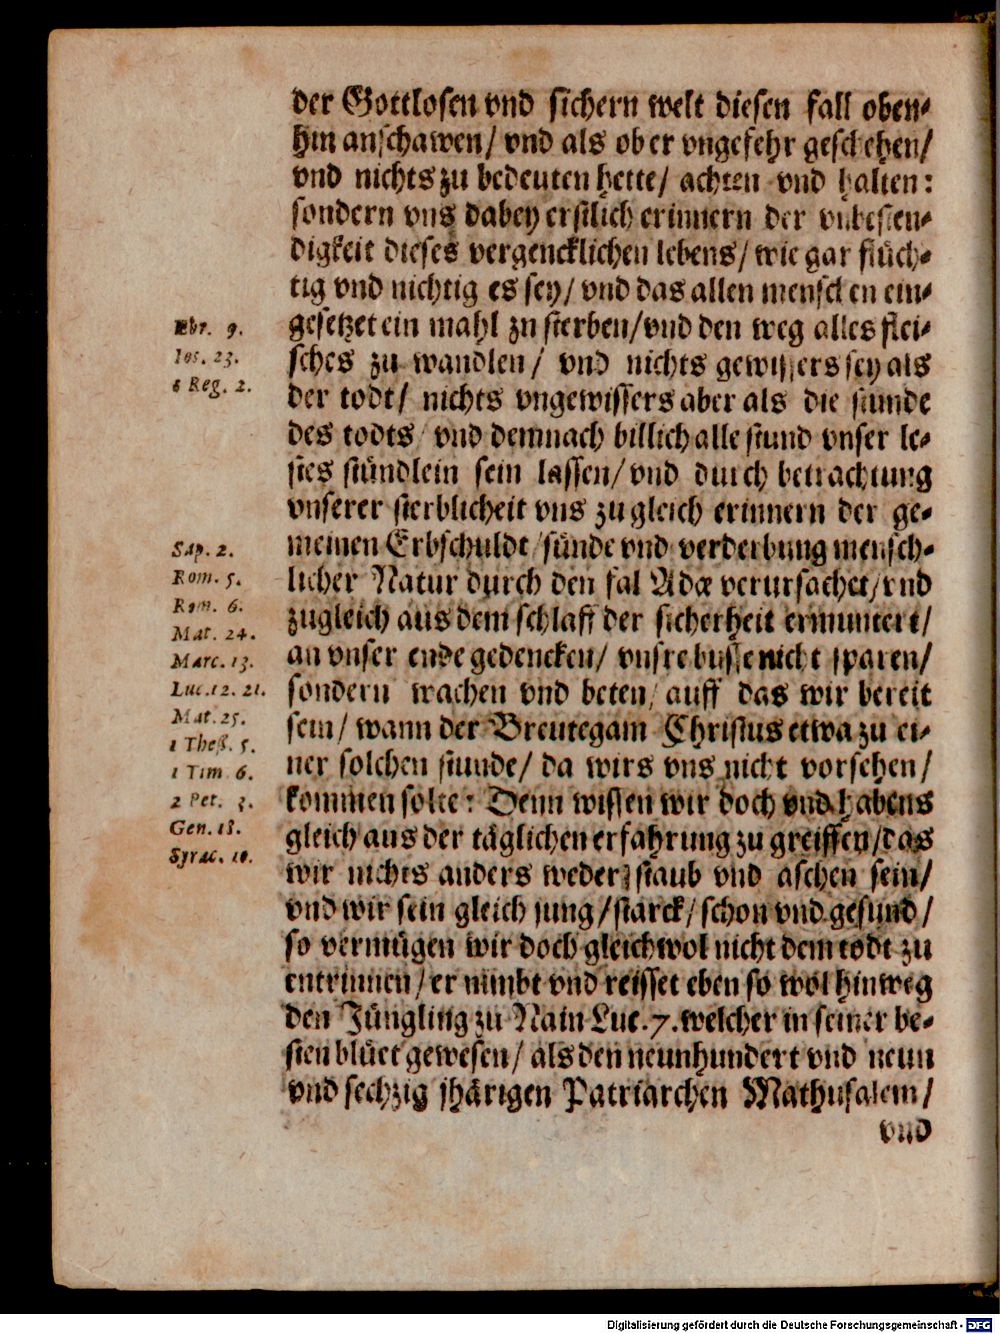 der Gottlosen vnd sichern welt diesen fall oben⸗
hin anschawen/ vnd als ob er vngefehr geschehen/
vnd nichts zu bedeuten hette/ achten vnd halten:
sondern vns dabey erstlich erinnern der vnbesten⸗
digkeit dieses vergencklichen lebens/ wie gar flüch⸗
tig vnd nichtig es sey/ vnd das allen menschen ein⸗
gesetzet ein mahl zu sterben/ vnd den weg alles flei⸗
sches zu wandlen/ vnd nichts gewissers sey als
der todt/ nichts vngewissers aber als die stunde
des todts/ vnd demnach billich alle stund vnser le⸗
stes stündlein sein lassen/ vnd durch betrachtung
vnserer sterblicheit vns zugleich erinnern der ge⸗
meinen Erbschuldt/ sünde vnd verderbung mensch⸗
licher Natur durch den fal Adæ verursachet/ vnd
zugleich aus dem schlaff der sicherheit ermuntert/
an vnser ende gedencken/ vnsre busse nicht sparen/
sondern wachen vnd beten/ auff das wir bereit
sein/ wann der Breutegam Christus etwa zu ei⸗
ner solchen stunde/ da wirs vns nicht vorsehen/
kommen solte: Denn wissen wir doch vnd habens
gleich aus der täglichen erfahrung zu greiffen/ das
wir nichts anders weder staub vnd aschen sein/
vnd wir sein gleich jung/ starck/ schon vnd gesund/
so vermügen wir doch gleichwol nicht dem todt zu
entrinnen/ er nimbt vnd reisset eben so wol hinweg
den Jüngling zu Nain Luc. 7. welcher in seiner be⸗
sten blüet gewesen/ als den neunhundert vnd neun
vnd sechzig jhärigen Patriarchen Mathusalem/
vnd
Ebr. 9.
Ios. 23.
Reg. 2.
Sap. 2.
Rom. 5.
Rom. 6.
Mat. 24.
Marc. 13.
Luc. 12. 21.
Mat. 25.
1 Theß. 5.
1 Tim 6.
2 Pet. 3.
Gen. 18.
Syrac. 10.
Digitalisierung gefördert durch die Deutsche Forschungsgemeinschaft - DFG